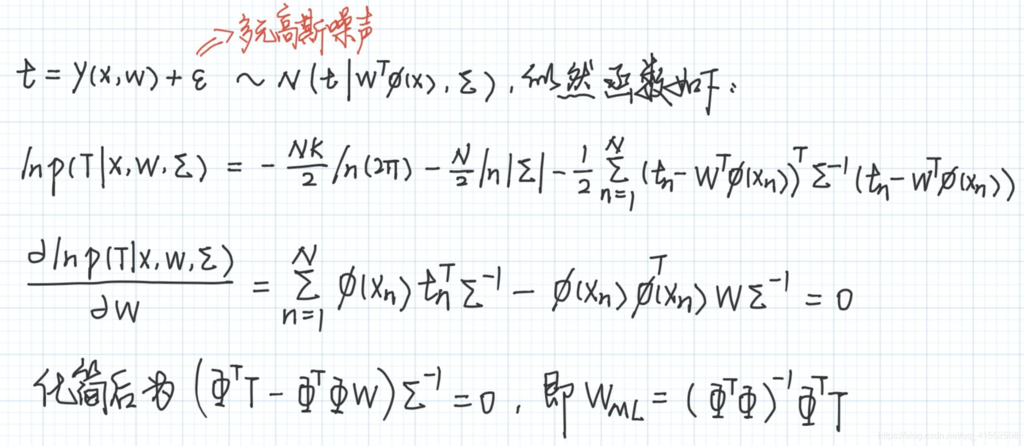 ⇒多元高斯噪声
t = y(x,w) + ε ~ N(t|wᵀϕ(x), Σ), 似然函数如下:
ln p(T|x,w,Σ) = - NK/2 ln(2π) - N/2 ln|Σ| - 1/2 Σ_{n=1}^{N} (tₙ - wᵀϕ(xₙ))ᵀ Σ⁻¹ (tₙ - wᵀϕ(xₙ))
∂ln p(T|x,w,Σ)/∂w = Σ_{n=1}^{N} ϕ(xₙ) tₙᵀ Σ⁻¹ - ϕ(xₙ) ϕᵀ(xₙ) w Σ⁻¹ = 0
化简后为 (ΦᵀT - ΦᵀΦW) Σ⁻¹ = 0, 即 W_ML = (ΦᵀΦ)⁻¹ΦᵀT